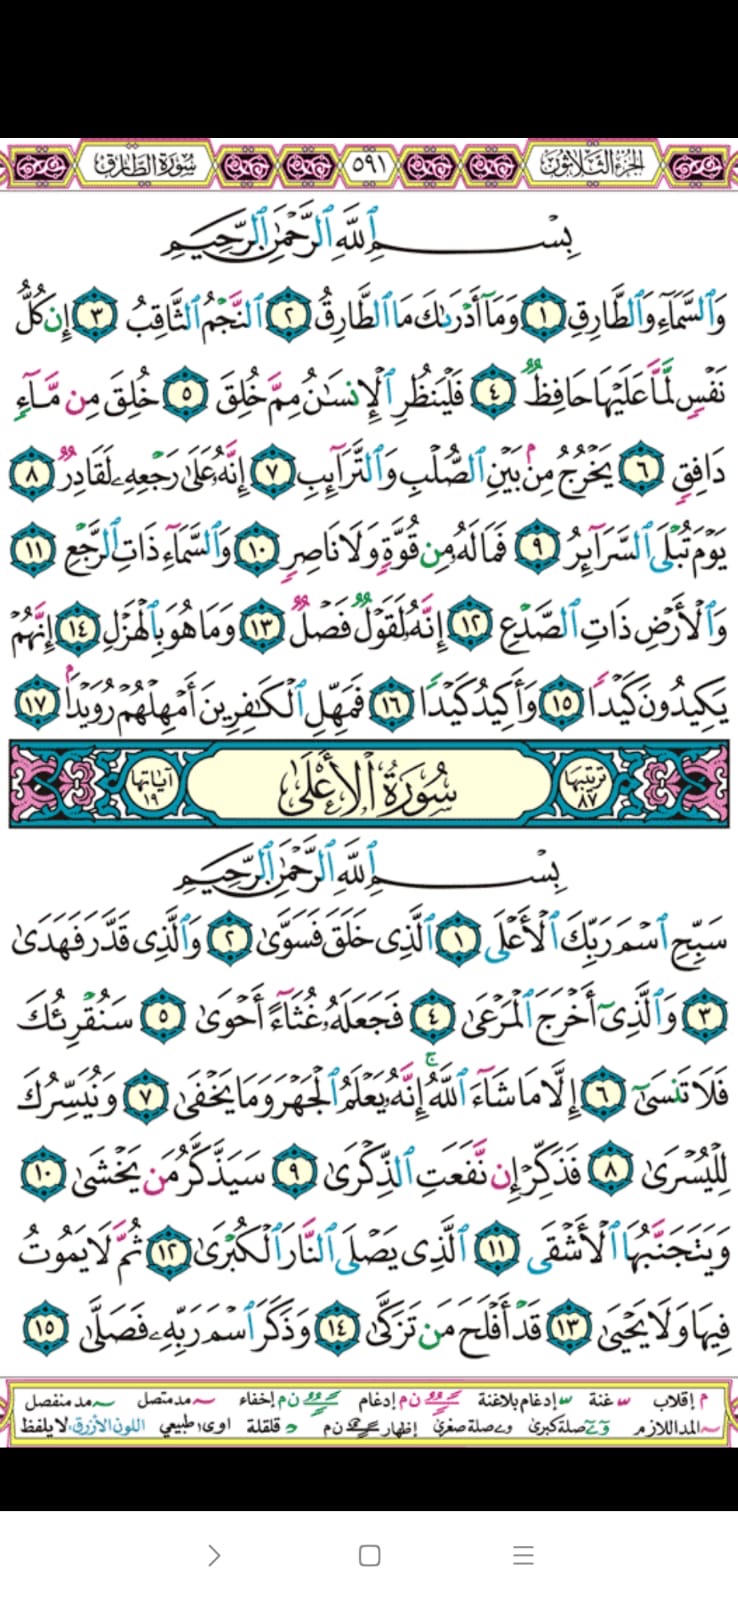 الجزء الثلاثون ٥٩١ سورة الطارق
بِسْمِ ٱللَّهِ ٱلرَّحْمَٰنِ ٱلرَّحِيمِ
وَٱلسَّمَآءِ وَٱلطَّارِقِ ١ وَمَآ أَدْرَىٰكَ مَا ٱلطَّارِقُ ٢ ٱلنَّجْمُ ٱلثَّاقِبُ ٣ إِن كُلُّ
نَفْسٍ لَّمَّا عَلَيْهَا حَافِظٌ ٤ فَلْيَنظُرِ ٱلْإِنسَٰنُ مِمَّ خُلِقَ ٥ خُلِقَ مِن مَّآءٍ
دَافِقٍ ٦ يَخْرُجُ مِنۢ بَيْنِ ٱلصُّلْبِ وَٱلتَّرَآئِبِ ٧ إِنَّهُۥ عَلَىٰ رَجْعِهِۦ لَقَادِرٌ ٨
يَوْمَ تُبْلَى ٱلسَّرَآئِرُ ٩ فَمَا لَهُۥ مِن قُوَّةٍ وَلَا نَاصِرٍ ١٠ وَٱلسَّمَآءِ ذَاتِ ٱلرَّجْعِ ١١
وَٱلْأَرْضِ ذَاتِ ٱلصَّدْعِ ١٢ إِنَّهُۥ لَقَوْلٌ فَصْلٌ ١٣ وَمَا هُوَ بِٱلْهَزْلِ ١٤ إِنَّهُمْ
يَكِيدُونَ كَيْدًا ١٥ وَأَكِيدُ كَيْدًا ١٦ فَمَهِّلِ ٱلْكَٰفِرِينَ أَمْهِلْهُمْ رُوَيْدًۢا ١٧
ترتيبها ٨٧ سُورَةُ ٱلْأَعْلَىٰ آياتها ١٩
بِسْمِ ٱللَّهِ ٱلرَّحْمَٰنِ ٱلرَّحِيمِ
سَبِّحِ ٱسْمَ رَبِّكَ ٱلْأَعْلَى ١ ٱلَّذِى خَلَقَ فَسَوَّىٰ ٢ وَٱلَّذِى قَدَّرَ فَهَدَىٰ
٣ وَٱلَّذِىٓ أَخْرَجَ ٱلْمَرْعَىٰ ٤ فَجَعَلَهُۥ غُثَآءً أَحْوَىٰ ٥ سَنُقْرِئُكَ
فَلَا تَنسَىٰٓ ٦ إِلَّا مَا شَآءَ ٱللَّهُ ۚ إِنَّهُۥ يَعْلَمُ ٱلْجَهْرَ وَمَا يَخْفَىٰ ٧ وَنُيَسِّرُكَ
لِلْيُسْرَىٰ ٨ فَذَكِّرْ إِن نَّفَعَتِ ٱلذِّكْرَىٰ ٩ سَيَذَّكَّرُ مَن يَخْشَىٰ ١٠
وَيَتَجَنَّبُهَا ٱلْأَشْقَى ١١ ٱلَّذِى يَصْلَى ٱلنَّارَ ٱلْكُبْرَىٰ ١٢ ثُمَّ لَا يَمُوتُ
فِيهَا وَلَا يَحْيَىٰ ١٣ قَدْ أَفْلَحَ مَن تَزَكَّىٰ ١٤ وَذَكَرَ ٱسْمَ رَبِّهِۦ فَصَلَّىٰ ١٥
م إقلاب غنة إدغام بلاغنة ن م إدغام ن م إخفاء مد متصل مد منفصل
المد اللازم صلة كبرى صلة صغرى إظهار ن م قلقلة اوى طبيعي اللون الأزرق، لا يلفظ